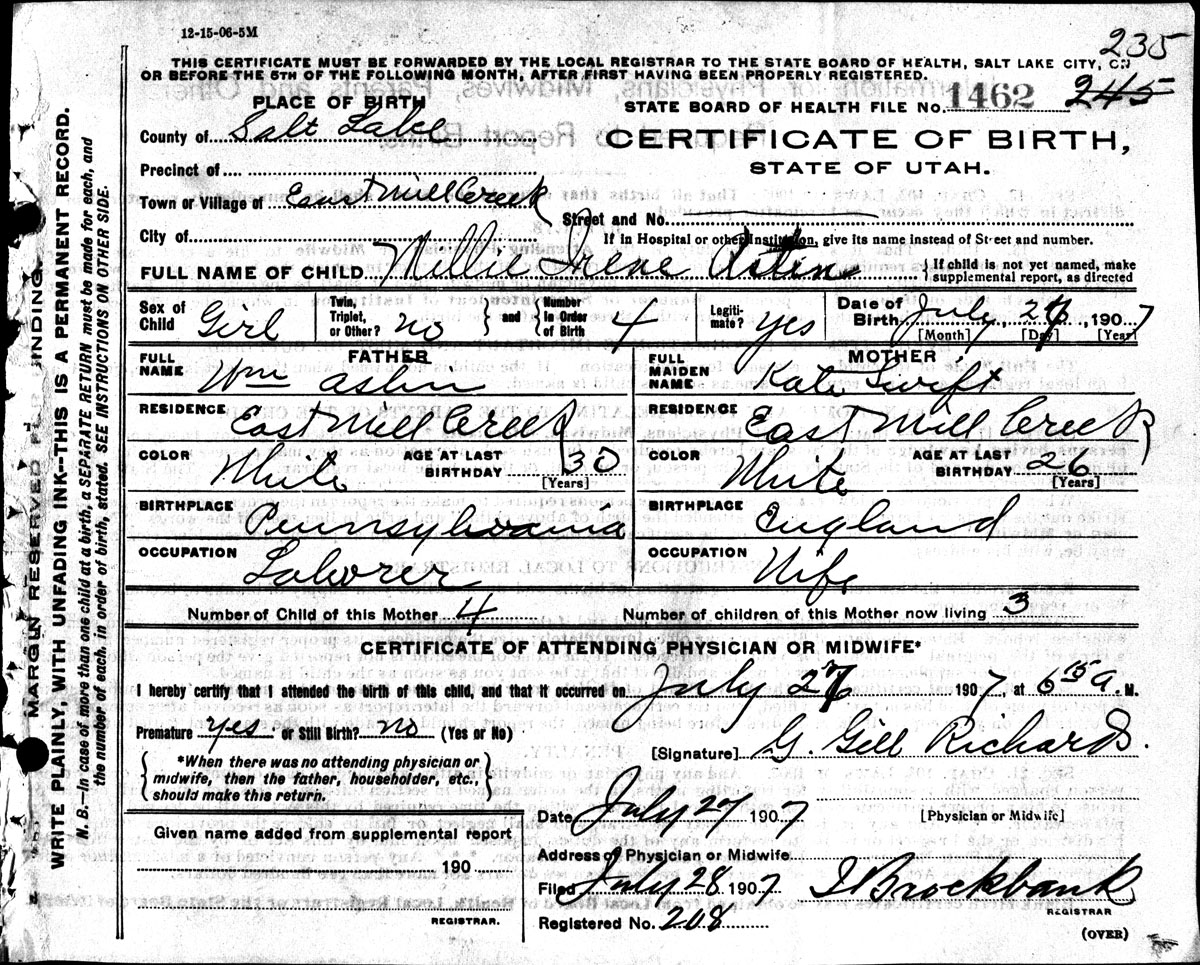 12-15-06-5M
235
THIS CERTIFICATE MUST BE FORWARDED BY THE LOCAL REGISTRAR TO THE STATE BOARD OF HEALTH, SALT LAKE CITY, ON
OR BEFORE THE 5TH OF THE FOLLOWING MONTH, AFTER FIRST HAVING BEEN PROPERLY REGISTERED.
PLACE OF BIRTH
STATE BOARD OF HEALTH FILE No. 1462 245
County of Salt Lake
CERTIFICATE OF BIRTH,
STATE OF UTAH.
Precinct of
Town or Village of East Mill Creek
Street and No.
City of
If in Hospital or other Institution, give its name instead of Street and number.
FULL NAME OF CHILD Millie Irene
{ If child is not yet named, make supplemental report, as directed
Sex of Child Girl
Twin, Triplet, or Other? no } and { Number in Order of Birth 4
Legiti-mate? yes
Date of Birth July, 27, 1907
[Month] [Day] [Year]
FATHER
FULL NAME Wm
RESIDENCE East Mill Creek
COLOR White AGE AT LAST BIRTHDAY 30
[Years]
BIRTHPLACE Pennsylvania
OCCUPATION Laborer
MOTHER
FULL MAIDEN NAME Kate Swift
RESIDENCE East Mill Creek
COLOR White AGE AT LAST BIRTHDAY 26
[Years]
BIRTHPLACE England
OCCUPATION Wife
Number of Child of this Mother 4 Number of children of this Mother now living 3
CERTIFICATE OF ATTENDING PHYSICIAN OR MIDWIFE*
I hereby certify that I attended the birth of this child, and that it occurred on July 1907, at 6 15 a. M.
Premature yes or Still Birth? no (Yes or No)
[Signature] G. Gill Richards.
{ *When there was no attending physician or midwife, then the father, householder, etc., should make this return. }
Date July 27 1907 [Physician or Midwife]
Given name added from supplemental report
190
REGISTRAR.
Address of Physician or Midwife
Filed July 28 1907 J Brockbank
REGISTRAR
Registered No. 208
(OVER)
MARGIN RESERVED FOR BINDING.
WRITE PLAINLY, WITH UNFADING INK—THIS IS A PERMANENT RECORD.
N. B.—In case of more than one child at a birth, a SEPARATE RETURN must be made for each, and
the number of each, in order of birth, stated. SEE INSTRUCTIONS ON OTHER SIDE.